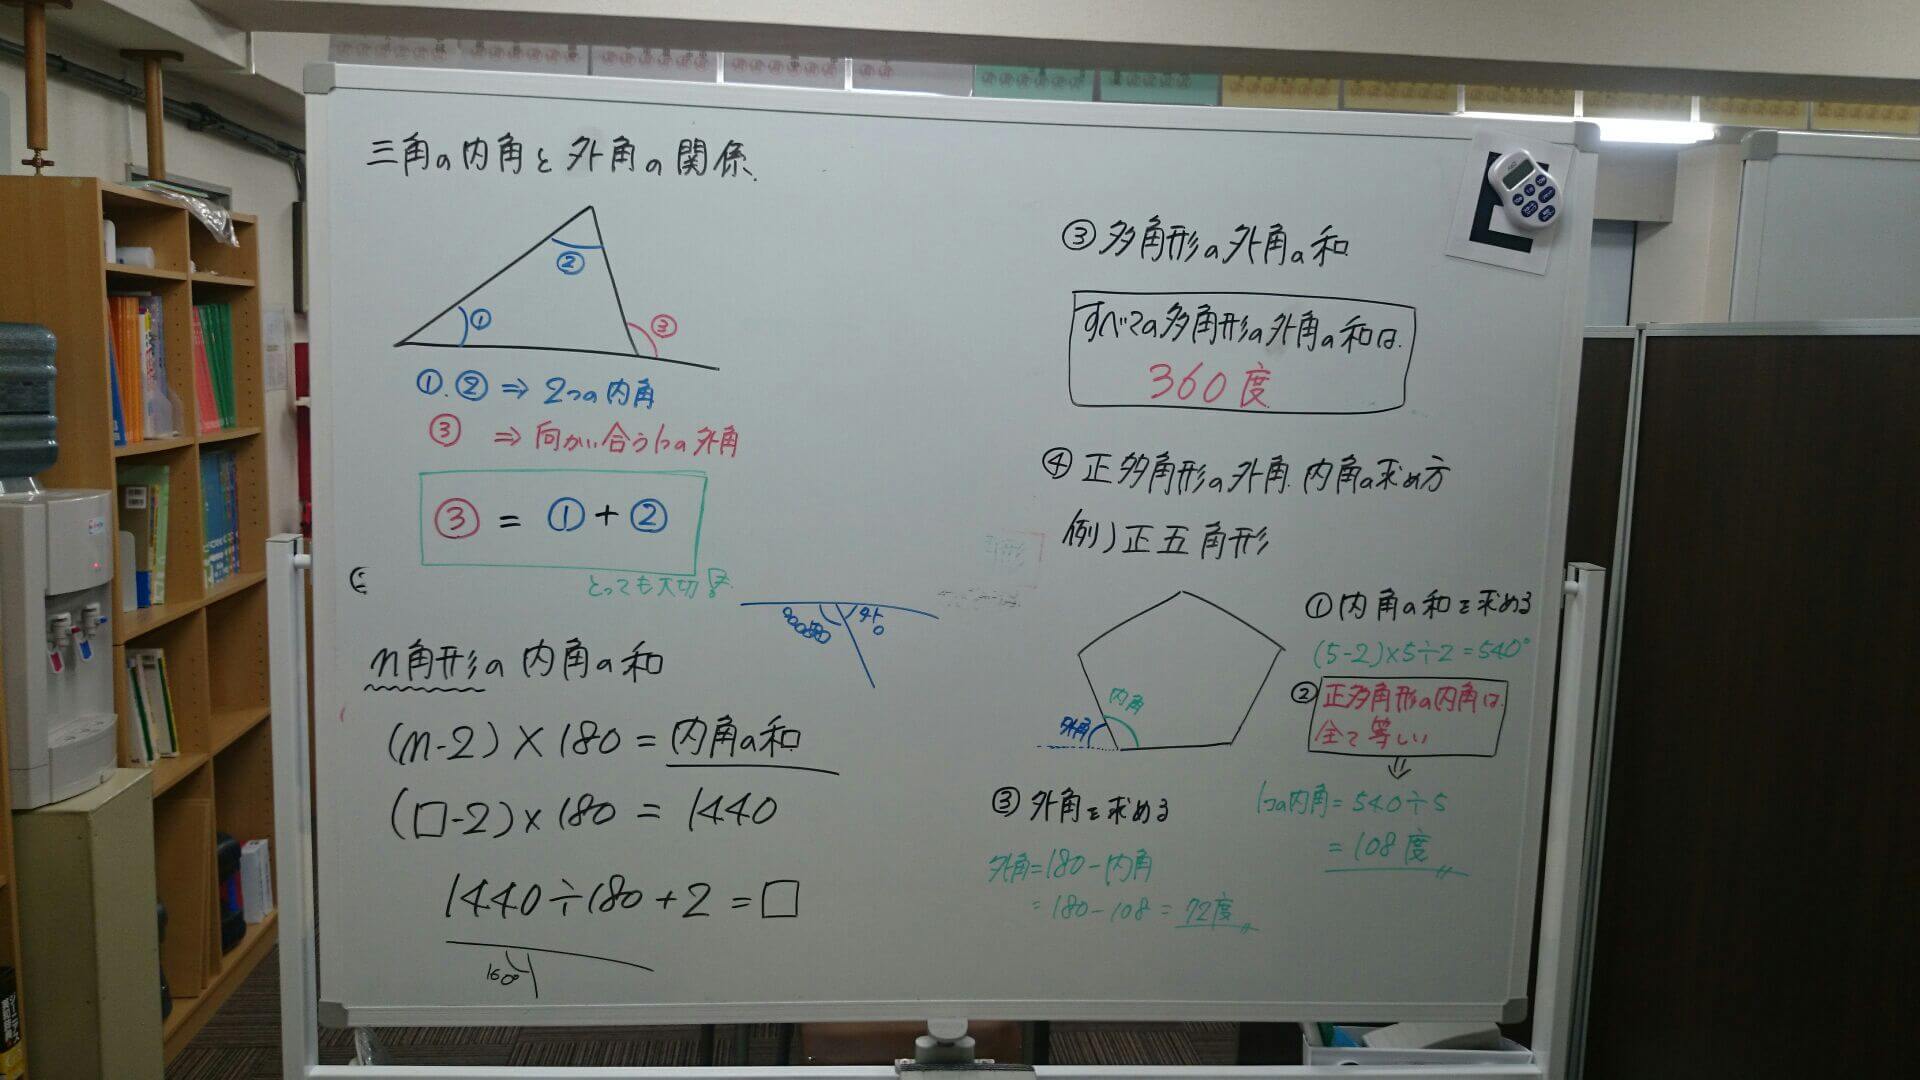 三角の内角と外角の関係.
②
①
③
①.② ⇒ 2つの内角
③ ⇒ 向かい合う1つの外角
③ = ① + ②
とっても大切
外
n角形の内角の和
(n-2)×180=内角の和
(□-2)×180=1440
1440÷180+2=□
160°
③多角形の外角の和
すべての多角形の外角の和は.
360度
④正多角形の外角.内角の求め方
例)正五角形
内角
外角
①内角の和を求める
(5-2)×5÷2=540°
②正多角形の内角は.
全て等しい
⇓
1つの内角=540÷5
=108度
③外角を求める
外角=180-内角
=180-108=72度